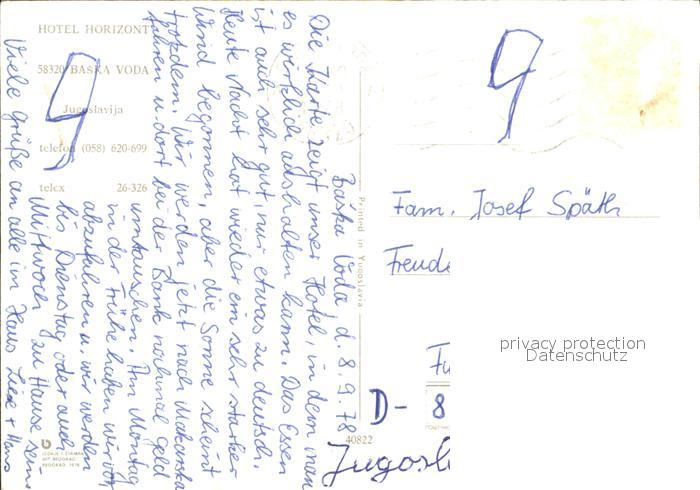 HOTEL HORIZONT
58320 BAŠKA VODA
Jugoslavija
telefon (058) 620-699
telex 26-326
Baška Voda, d. 8. 9. 78
Die Karte zeigt unser Hotel, in dem man
es wirklich aushalten kann. Das Essen
ist auch sehr gut, nur etwas zu deutsch.
Heute Nacht hat wieder ein sehr starker
Wind begonnen, aber die Sonne scheint
trotzdem. Wir werden jetzt nach Makarska
fahren u. dort bei der Bank nochmal Geld
umtauschen. Am Montag
in der Frühe haben wir vor
abzufahren u. wir werden
bis Dienstag oder auch
Mittwoch zu Hause sein.
Viele Grüße an alle im Haus Lisa + Hans
Printed in Yugoslavia
40822
9
9
Fam. Josef Späth
Freude
Fu
D- 8
Jugosl
privacy protection
Datenschutz